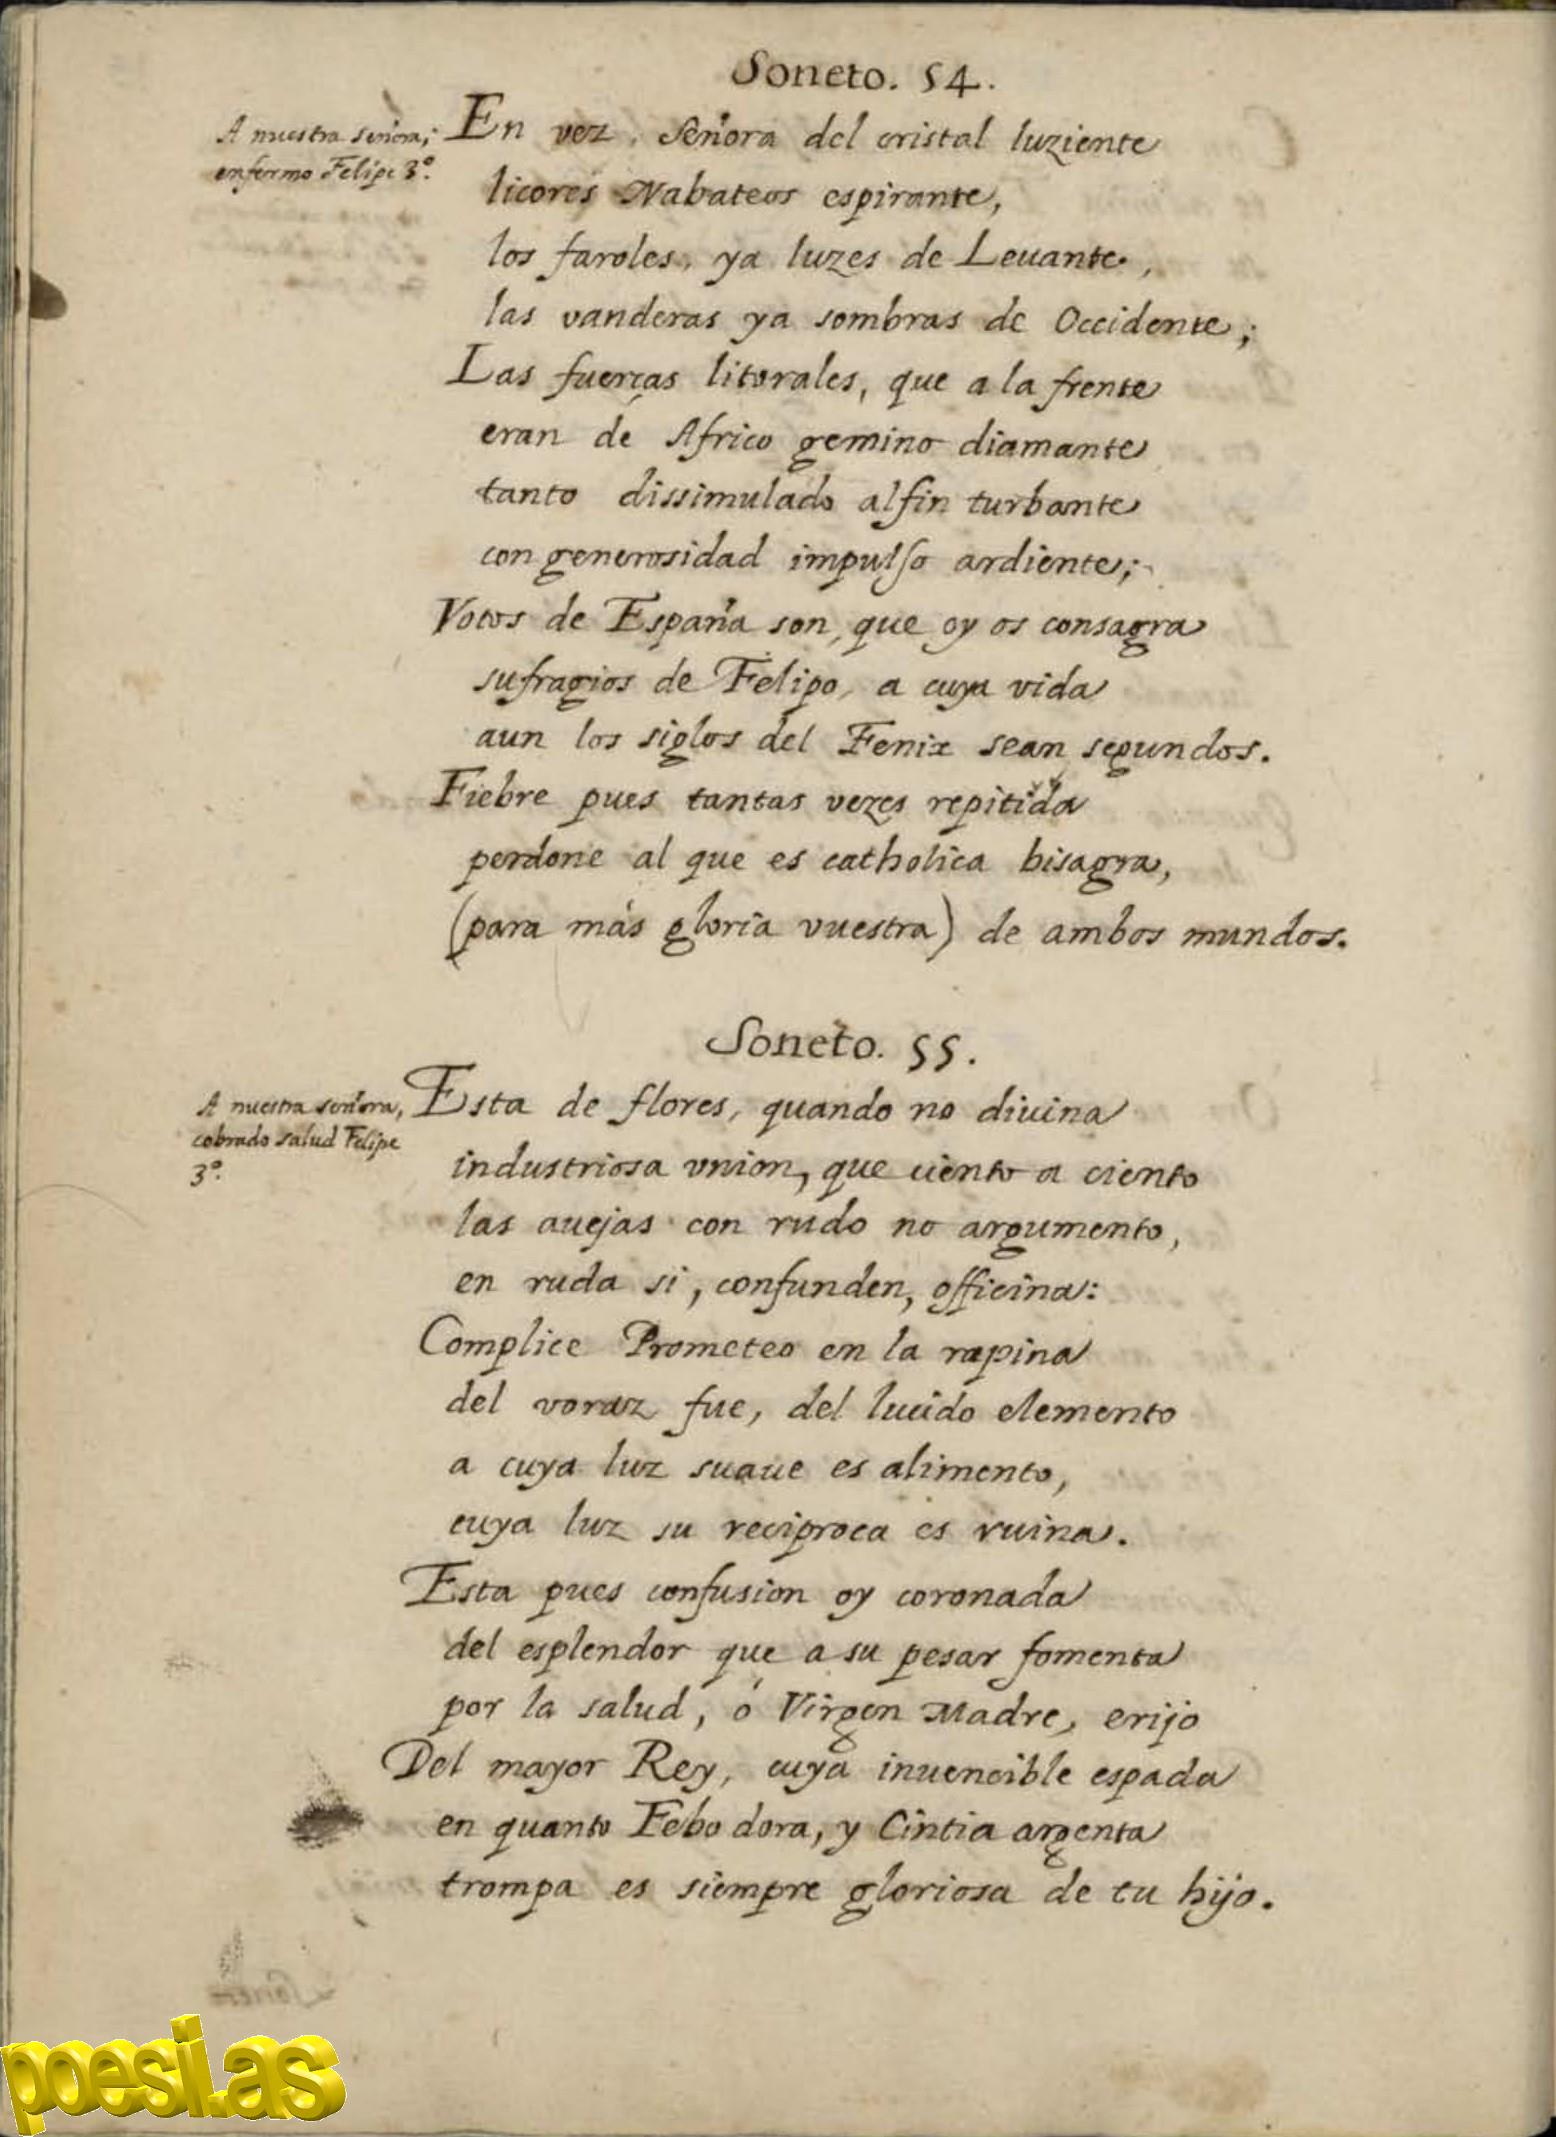 Soneto. 54.
A nuestra señora;
enfermo Felipe 3º.
En vez, Señora del cristal luziente
licores Nabateos espirante,
los faroles, ya luzes de Leuante,
las vanderas ya sombras de Occidente;
Las fuerças litorales, que a la frente
eran de Africo gemino diamante
tanto dissimulado al fin turbante
con generosidad impulso ardiente;
Votos de España son, que oy os consagra
sufragios de Felipo, a cuya vida
aun los siglos del Fenix sean segundos.
Fiebre pues tantas vezes repitida
perdone al que es catholica bisagra,
(para más gloria vuestra) de ambos mundos.
Soneto. 55.
A nuestra señora,
cobrado salud Felipe
3º.
Esta de flores, quando no diuina
industriosa vnion, que ciento a ciento
las auejas con rudo no argumento,
en ruda si, confunden, officina:
Complice Prometeo en la rapina
del voraz fue, del lucido elemento
a cuya luz suaue es alimento,
cuya luz su reciproca es ruina.
Esta pues confusion oy coronada
del esplendor que a su pesar fomenta
por la salud, ó Virgen Madre, erijo
Del mayor Rey, cuya inuencible espada
en quanto Febo dora, y Cintia argenta
trompa es siempre gloriosa de tu hijo.
poesi.as